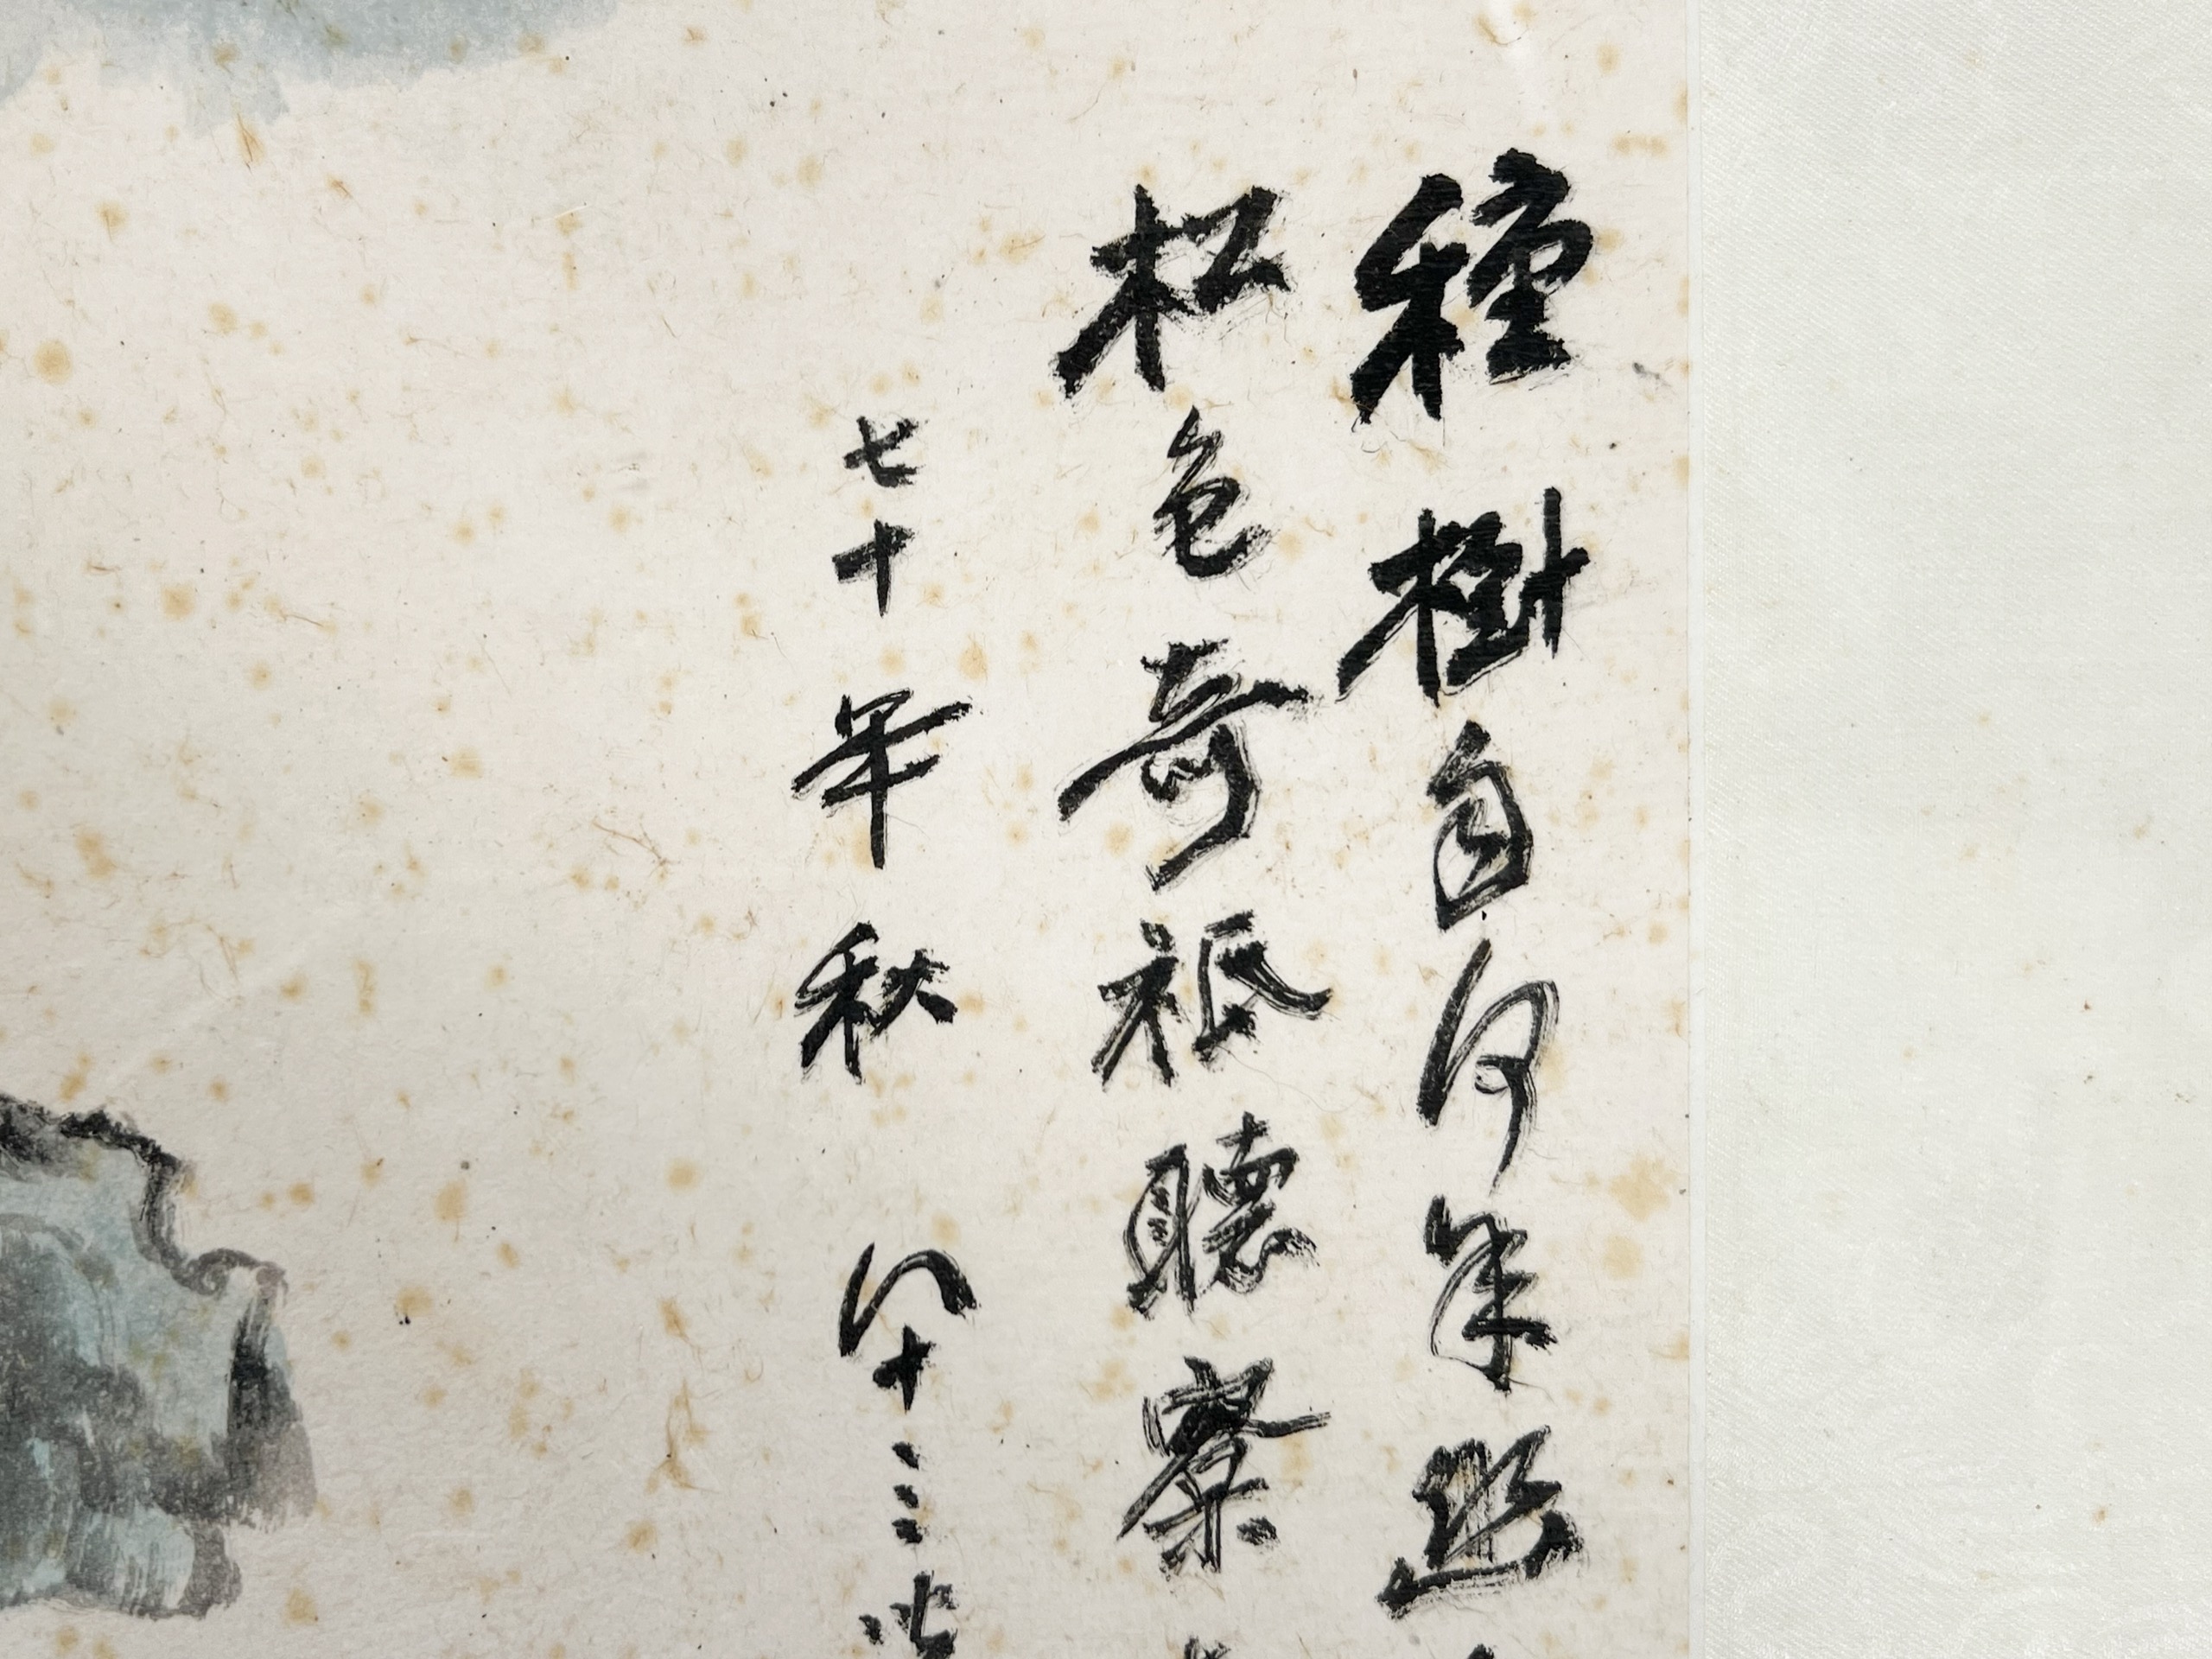 種樹自何年幽
松色奇祇聽
七十年秋 八十三